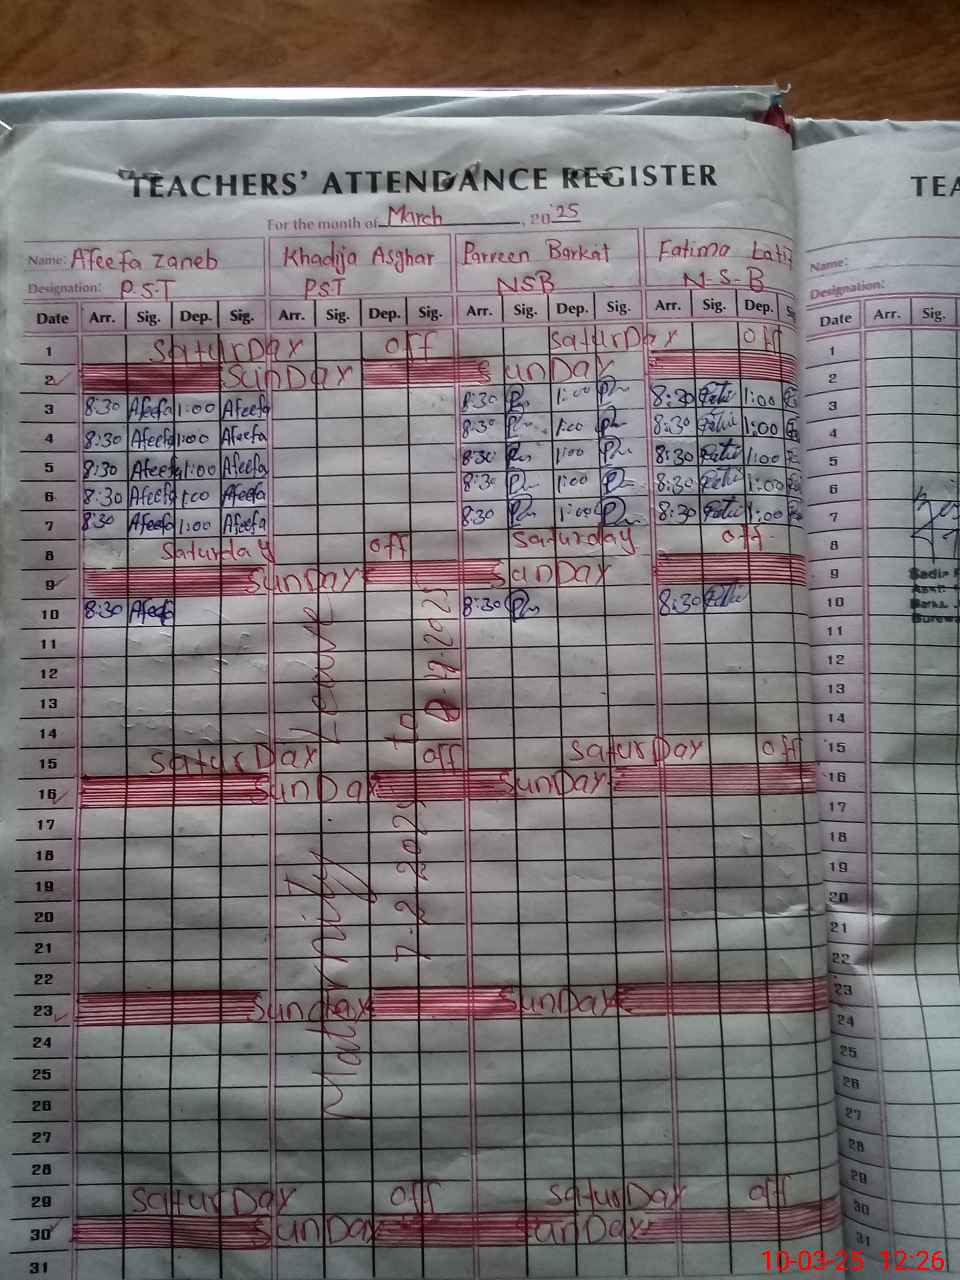 TEACHERS' ATTENDANCE REGISTER
For the month of March, 20 25
Name: Afeefa Zaneb Khadija Asghar Parveen Barkat Fatima
Designation: P.S.T PST NSB N-S-B
Date Arr. Sig. Dep. Sig. Arr. Sig. Dep. Sig. Arr. Sig. Dep. Sig. Arr. Sig. Dep.
1 SaturDay off SaturDay off
2 SunDay SunDay
3 8:30 Afeefa 1:00 Afeefa 8:30 1:00 8:30 1:00
4 8:30 Afeefa 1:00 Afeefa 8:30 1:00 8:30 1:00
5 8:30 Afeefa 1:00 Afeefa 8:30 1:00 8:30 1:00
6 8:30 Afeefa 1:00 Afeefa 8:30 1:00 8:30 1:00
7 8:30 Afeefa 1:00 Afeefa 8:30 1:00 8:30 1:00
8 Saturday off Saturday off
9 SunDay SunDay
10 8:30 Afeefa 8:30 8:30
11
12
13
14
15 SaturDay off SaturDay off
16 SunDay SunDay
17
18
19
20
21
22
23 Sunday SunDay
24
25
26
27
28
29 SaturDay off SaturDay off
30 SunDay SunDay
31
Maternity Leave
to
TEA
Name:
Designation:
Date Arr. Sig.
1
2
3
4
5
6
7
8
9
10
11
12
13
14
15
16
17
18
19
20
21
22
23
24
25
26
27
28
29
30
31
10-03-25 12:26